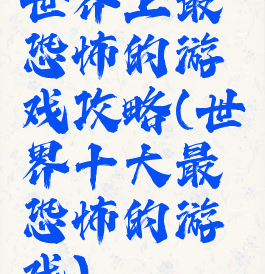 世界上最
恐怖的游
戏攻略(世
界十大最
恐怖的游
戏)